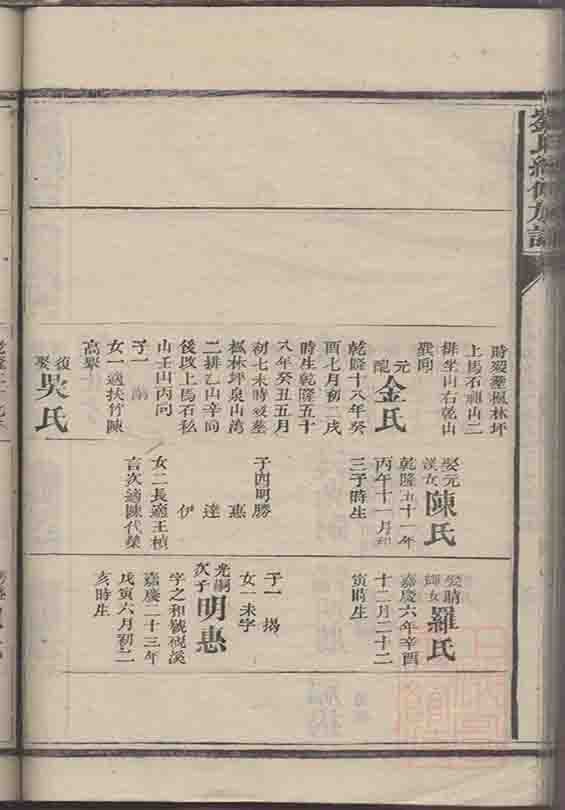 時歿塟楓林坪
上馬石祖山二
排坐山右乾山
巽向
元配金氏
乾隆十八年癸
酉七月初二戌
時生乾隆五十
八年癸丑五月
初七未時歿塟
楓林坪泉山湾
二排乙山辛向
後改上馬石私
山壬山丙向
子一
女一適扶竹陳
高舉
復娶吳氏
娶元漢女陳氏
乾隆五十一年
丙午十一月初
三子時生
子四明勝
惠
達
伊
女二長適王楨
言次適陳代榮
娶晴輝女羅氏
嘉慶六年辛酉
十二月二十二
寅時生
子一 揚
女一未字
光嗣次子明惠
字之和號硯溪
嘉慶二十三年
戊寅六月初二
亥時生